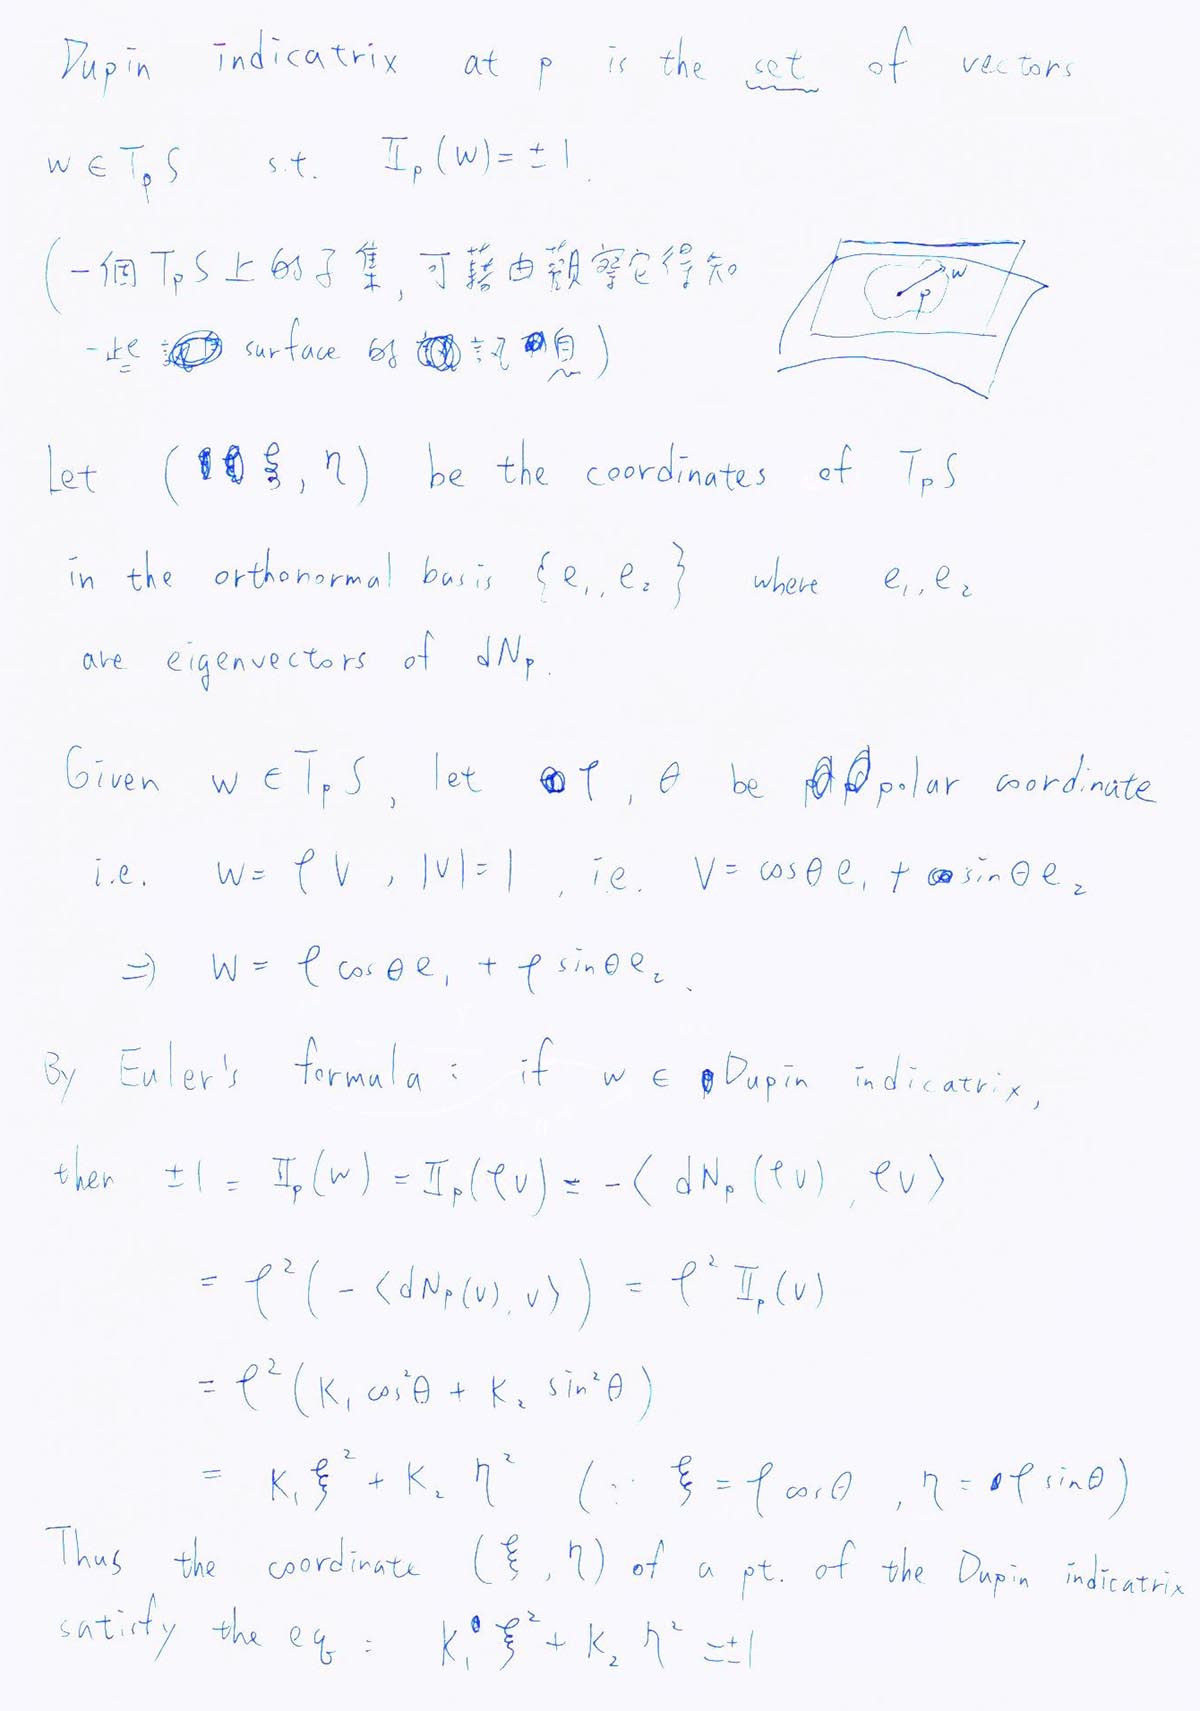 Dupin indicatrix at p is the set of vectors
w ∈ TpS s.t. IIp(w) = ±1.
(一個 TpS 上的子集, 可藉由觀察它得知
一些 surface 的訊息)
w
p
Let (ξ, η) be the coordinates of TpS
in the orthonormal basis {e₁, e₂} where e₁, e₂
are eigenvectors of dNp.
Given w ∈ TpS, let ρ, θ be polar coordinate
i.e. w = ρv, |v| = 1, i.e. v = cosθ e₁ + sinθ e₂
⇒ w = ρ cosθ e₁ + ρ sinθ e₂.
By Euler's formula: if w ∈ Dupin indicatrix,
then ±1 = IIp(w) = IIp(ρv) = -⟨dNp(ρv), ρv⟩
= ρ²(-⟨dNp(v), v⟩) = ρ² IIp(v)
= ρ²(K₁ cos²θ + K₂ sin²θ)
= K₁ξ² + K₂η² (∵ ξ = ρ cosθ, η = ρ sinθ)
Thus the coordinate (ξ, η) of a pt. of the Dupin indicatrix
satisfy the eq: K₁ξ² + K₂η² = ±1